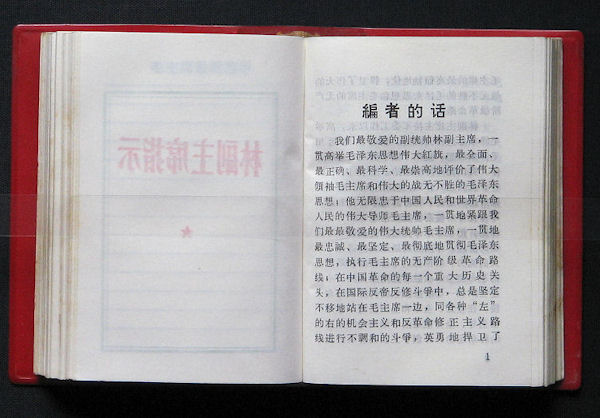 林副主席指示
編者的话
我们最敬爱的副统帅林副主席，一
贯高举毛泽东思想伟大红旗，最全面、
最正确、最科学、最崇高地评价了伟大
领袖毛主席和伟大的战无不胜的毛泽东
思想；他无限忠于中国人民和世界革命
人民的伟大导师毛主席，一贯地紧跟我
们最最敬爱的伟大统帅毛主席，一贯地
最忠诚、最坚定、最彻底地贯彻毛泽东
思想，执行毛主席的无产阶级革命路
线；在中国革命的每一个重大历史关
头，在国际反帝反修斗爭中，总是坚定
不移地站在毛主席一边，同各种“左”
的右的机会主义和反革命修正主义路
线进行不調和的斗爭，英勇地捍卫了
1